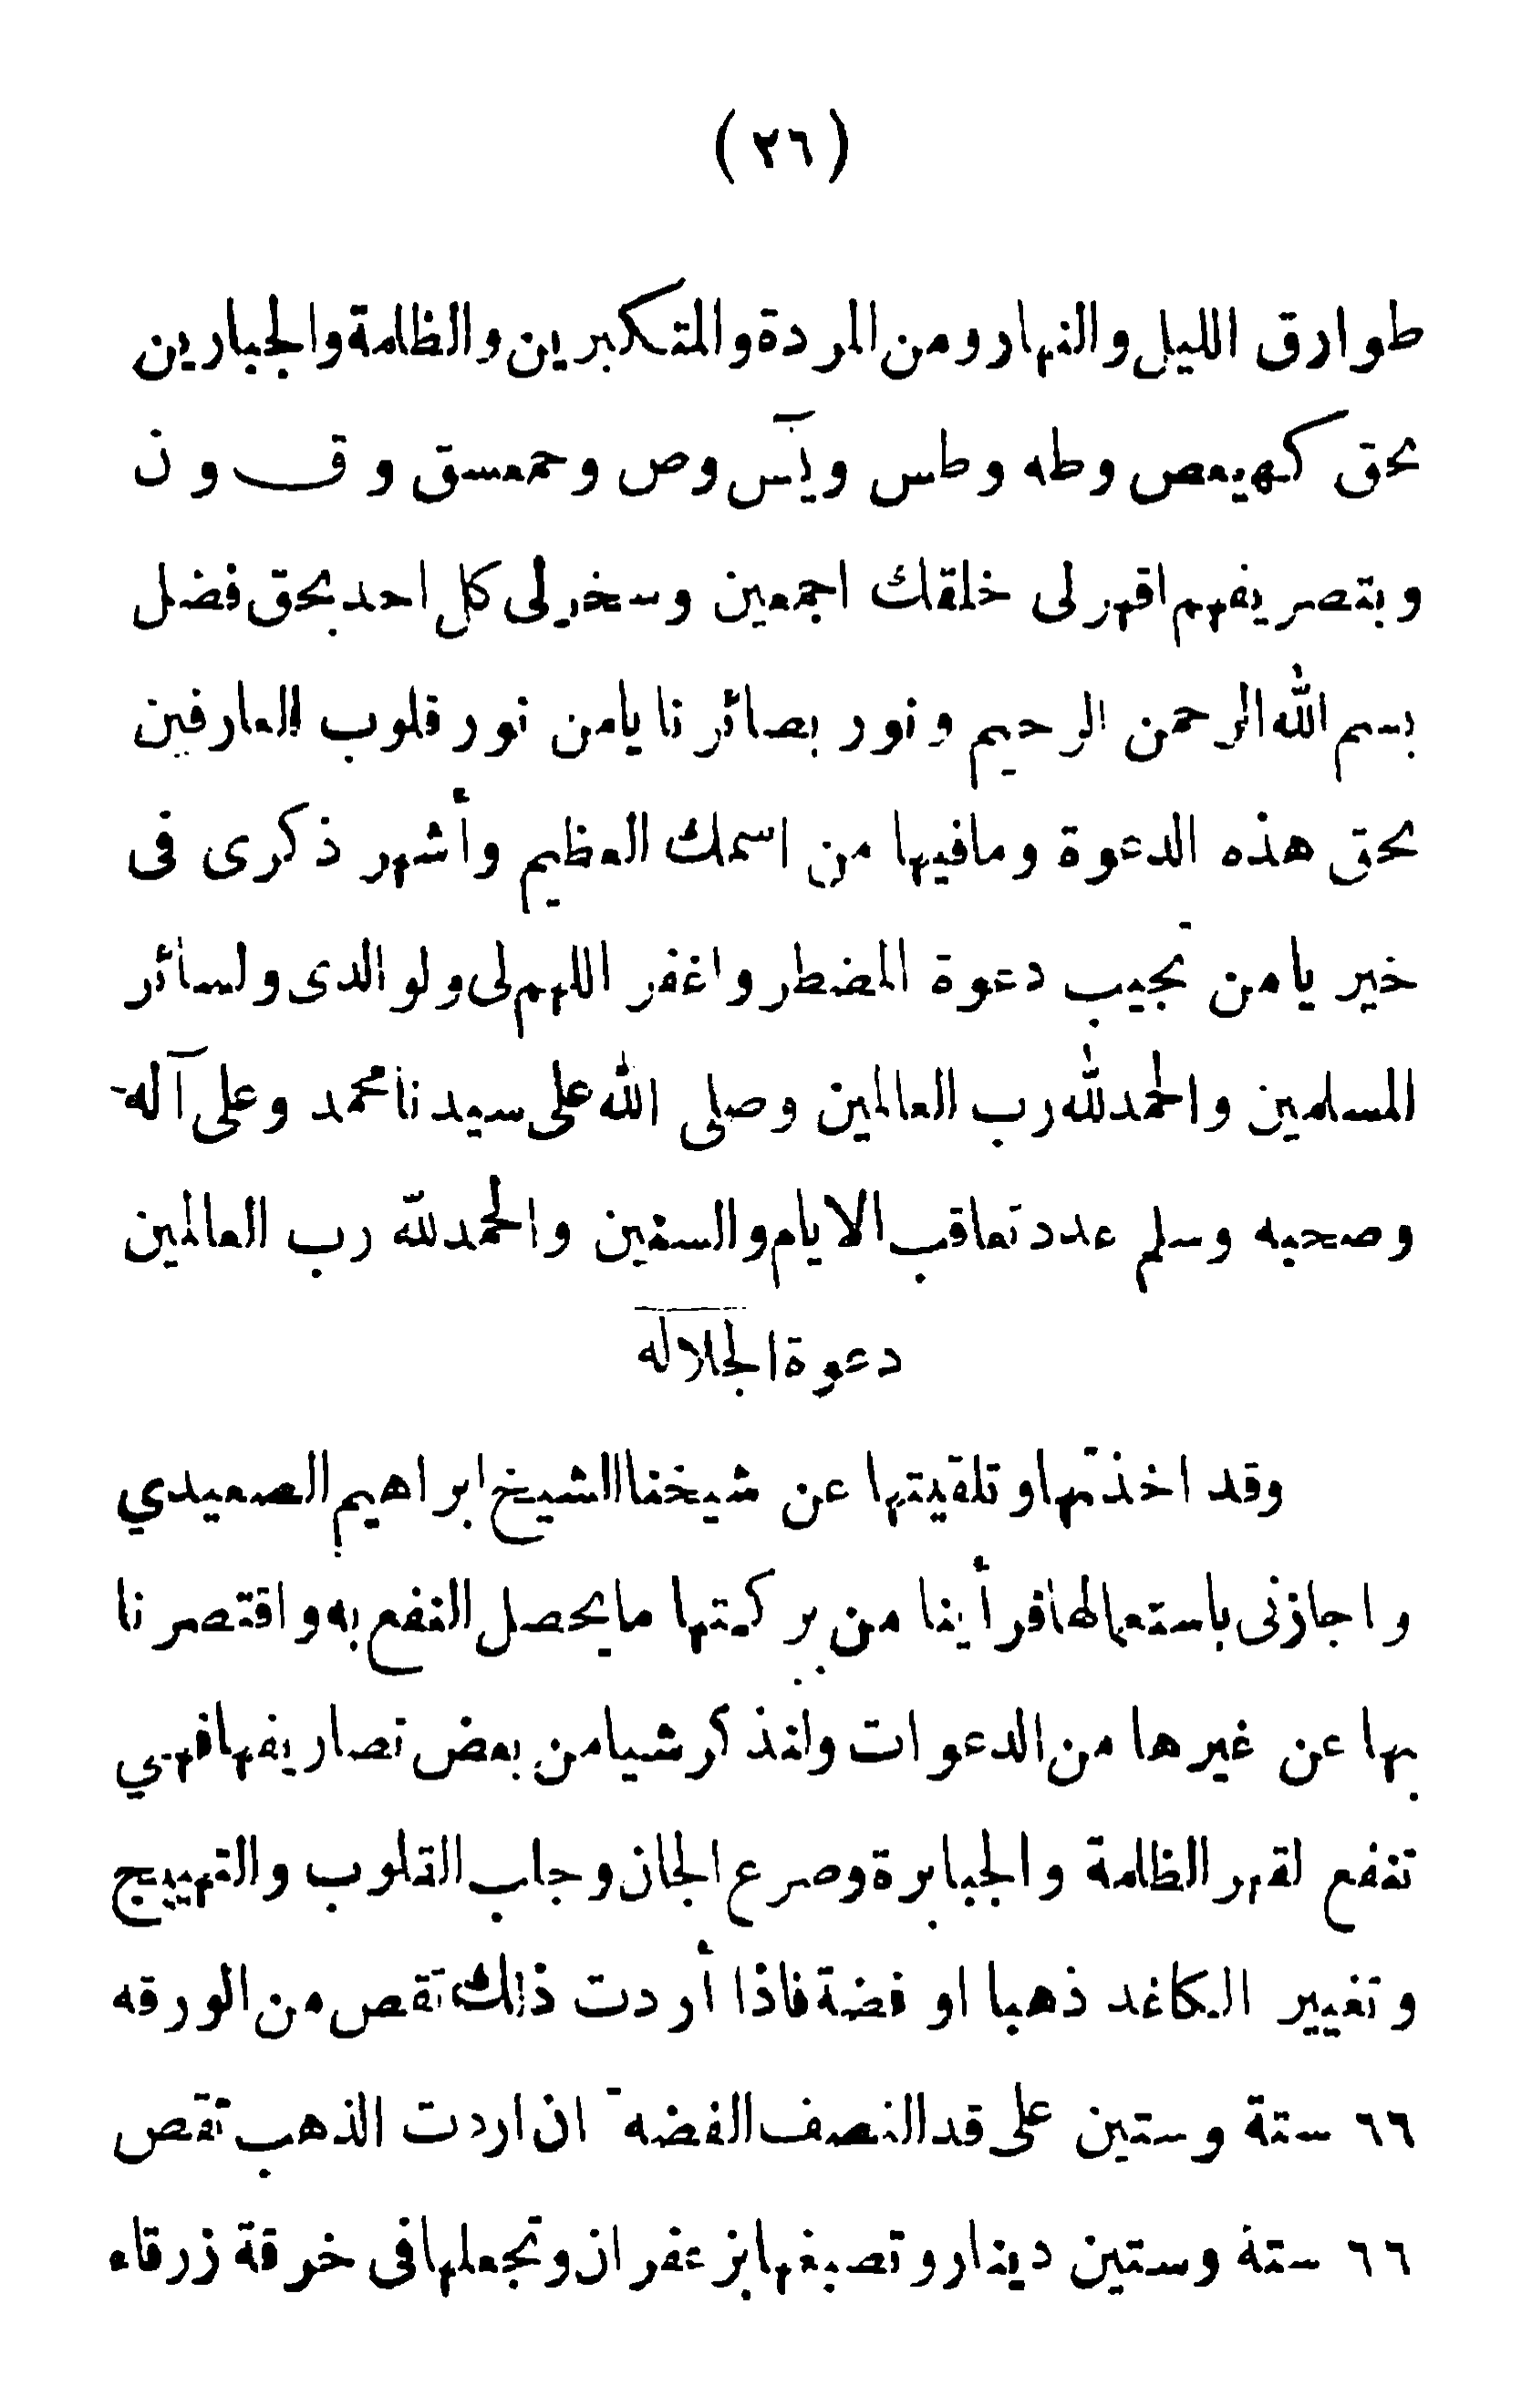 (٢٦)
طوارق الليل والنهار ومن المردة والمتكبرين والظلمة والجبارين
بحق كهيعص وطه وطس ويٓس وص وحمعسق و ق و ن
وبتصريفهم اقهر لى خلقك اجمعين وسخر لى كل احد بحق فضل
بسم الله الرحمن الرحيم ونور بصائرنا يامن نور قلوب العارفين
بحق هذه الدعوة ومافيها من اسمك العظيم وأشهر ذكرى فى
خير يامن تجيب دعوة المضطر واغفر اللهم لى ولوالدى ولسائر
المسلمين والحمد لله رب العالمين وصلى الله على سيدنا محمد وعلى آله
وصحبه وسلم عدد تعاقب الايام والسنين والحمد لله رب العالمين
دعوة الجلاله
وقد اخذتها وتلقيتها عن شيخنا الشيخ ابراهيم الصعيدي
واجازنى باستعمالها فرأينا من بركتها مايحصل النفع به واقتصرنا
بها عن غيرها من الدعوات ولنذكر شيا من بعض تصاريفها فهي
تنفع لقهر الظلمة والجبابرة وصرع الجان وجلب القلوب والتهييج
وتغيير الكاغد ذهبا او فضة فاذا أردت ذلك تقص من الورقه
٦٦ ستة وستين على قد النصف الفضه ان اردت الذهب تقص
٦٦ ستة وستين دينار وتصبغها بزعفران وتجعلها فى خرقة زرقاء